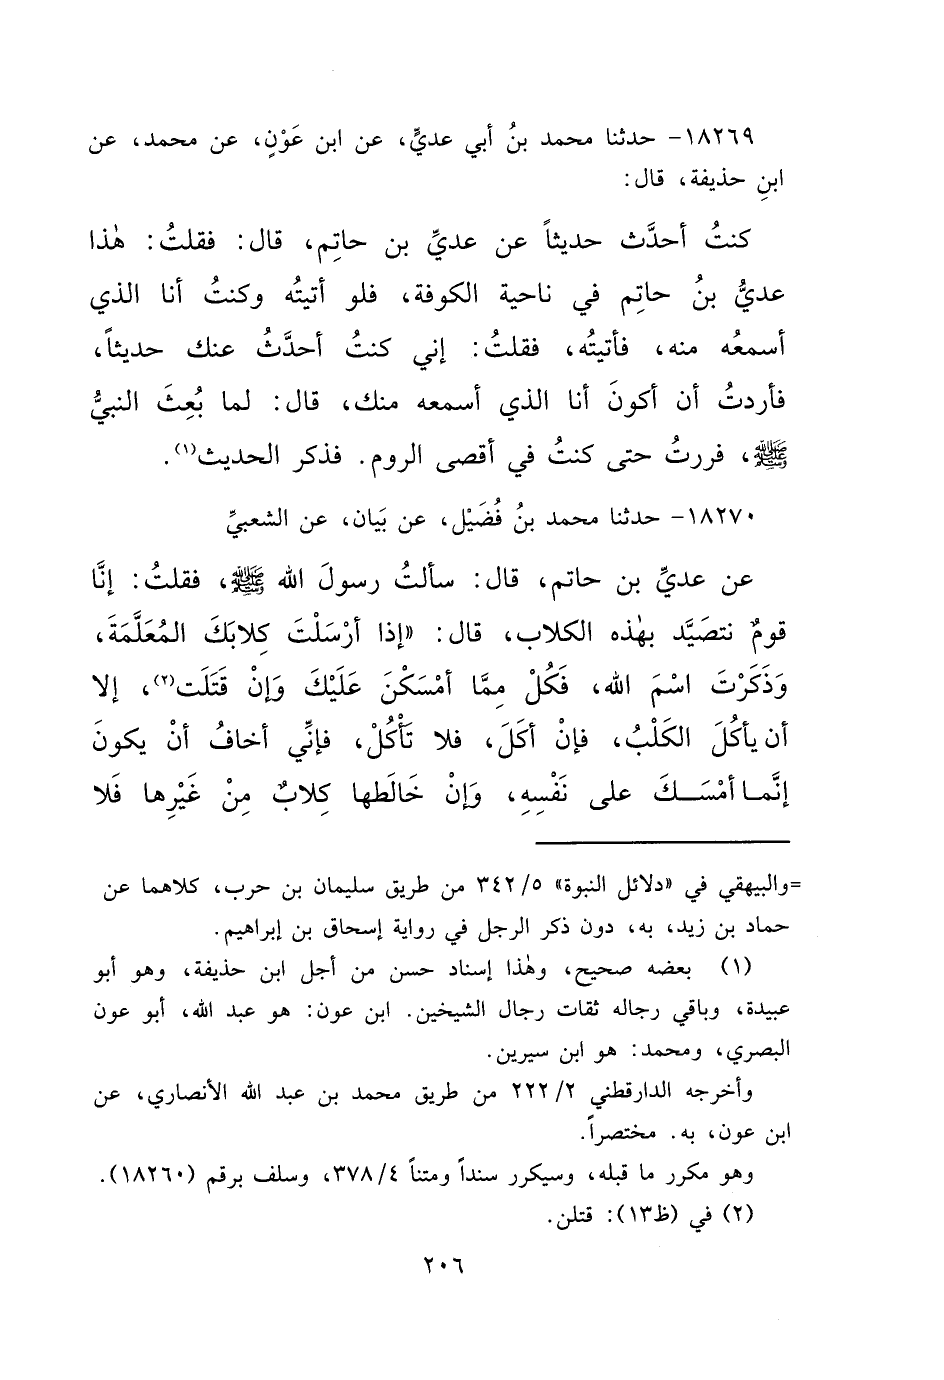 ١٨٢٦٩- حدثنا محمد بنُ أبي عديٍّ، عن ابن عَوْنٍ، عن محمد، عن
ابنِ حذيفة، قال:
كنتُ أحدَّث حديثاً عن عديِّ بن حاتِم، قال: فقلتُ: هٰذا
عديُّ بنُ حاتِم في ناحية الكوفة، فلو أتيتُه وكنتُ أنا الذي
أسمعُه منه، فأتيتُه، فقلتُ: إني كنتُ أحدَّثُ عنك حديثاً،
فأردتُ أن أكونَ أنا الذي أسمعه منك، قال: لما بُعِثَ النبيُّ
ﷺ، فررتُ حتى كنتُ في أقصى الروم. فذكر الحديث(١).
١٨٢٧٠- حدثنا محمد بنُ فُضَيْل، عن بَيَان، عن الشعبيِّ
عن عديِّ بن حاتم، قال: سألتُ رسولَ الله ﷺ، فقلتُ: إنَّا
قومٌ نتصَيَّد بهٰذه الكلاب، قال: «إذا أرْسَلْتَ كِلابَكَ المُعَلَّمَةَ،
وَذَكَرْتَ اسْمَ الله، فَكُلْ مِمَّا أمْسَكْنَ عَلَيْكَ وَإنْ قَتَلَت(٢)، إلا
أن يأكُلَ الكَلْبُ، فإنْ أكَلَ، فلا تَأْكُلْ، فإنِّي أخافُ أنْ يكونَ
إنَّما أمْسَـكَ على نَفْسِهِ، وَإنْ خَالَطها كِلابٌ مِنْ غَيْرِها فَلا
=والبيهقي في «دلائل النبوة» ٣٤٢/٥ من طريق سليمان بن حرب، كلاهما عن
حماد بن زيد، به، دون ذكر الرجل في رواية إسحاق بن إبراهيم.
(١) بعضه صحيح، وهٰذا إسناد حسن من أجل ابن حذيفة، وهو أبو
عبيدة، وباقي رجاله ثقات رجال الشيخين. ابن عون: هو عبد الله، أبو عون
البصري، ومحمد: هو ابن سيرين.
وأخرجه الدارقطني ٢٢٢/٢ من طريق محمد بن عبد الله الأنصاري، عن
ابن عون، به. مختصراً.
وهو مكرر ما قبله، وسيكرر سنداً ومتناً ٣٧٨/٤، وسلف برقم (١٨٢٦٠).
(٢) في (ظ١٣): قتلن.
٢٠٦